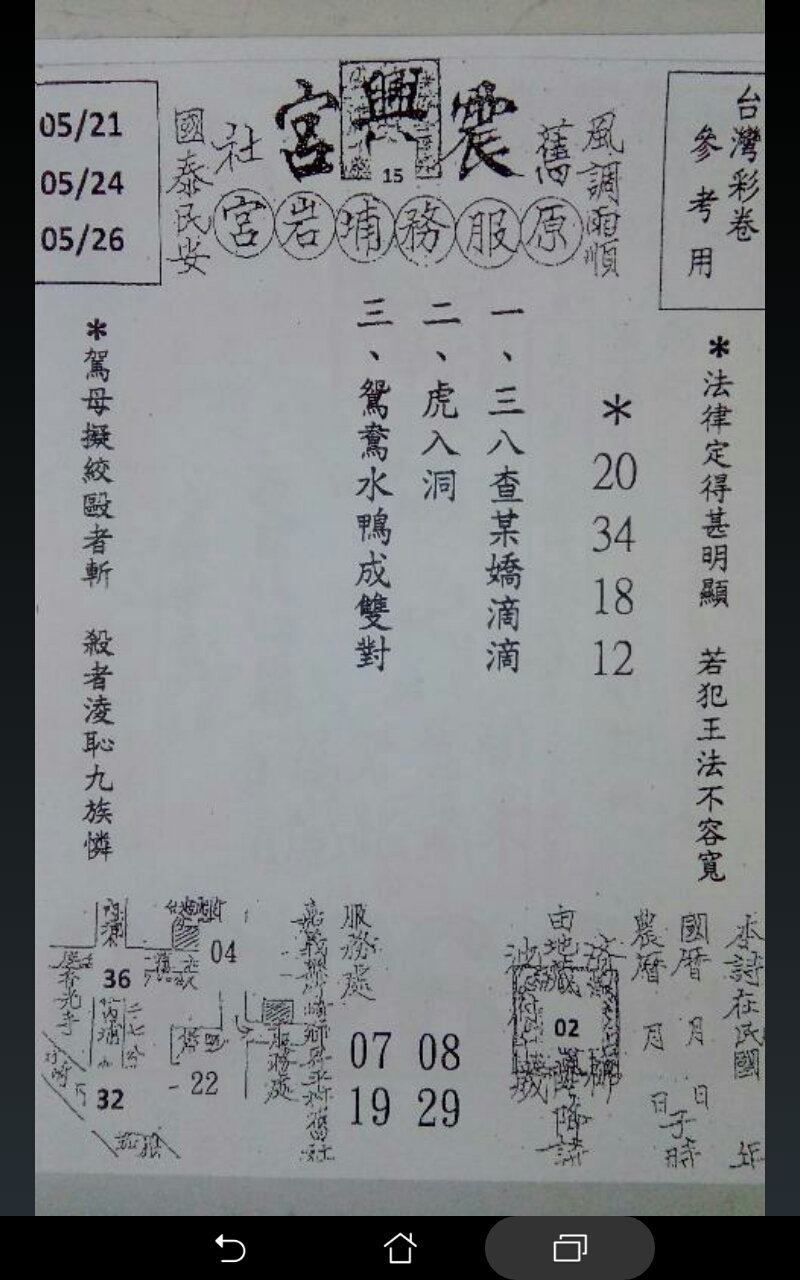 台灣彩卷
參考用
風調雨順
舊
震興宮
15
社
國泰民安
原服務埔岩宮
05/21
05/24
05/26
*法律定得甚明顯 若犯王法不容寬
*
20
34
18
12
一、三八查某嬌滴滴
二、虎入洞
三、鴛鴦水鴨成雙對
*駕母擬絞毆者斬 殺者淩恥九族憐
本詩在民國 年
國曆 月 日
農曆 月 日子時
02
降詩
服務處
07 08
19 29
服務處
04
36
22
32